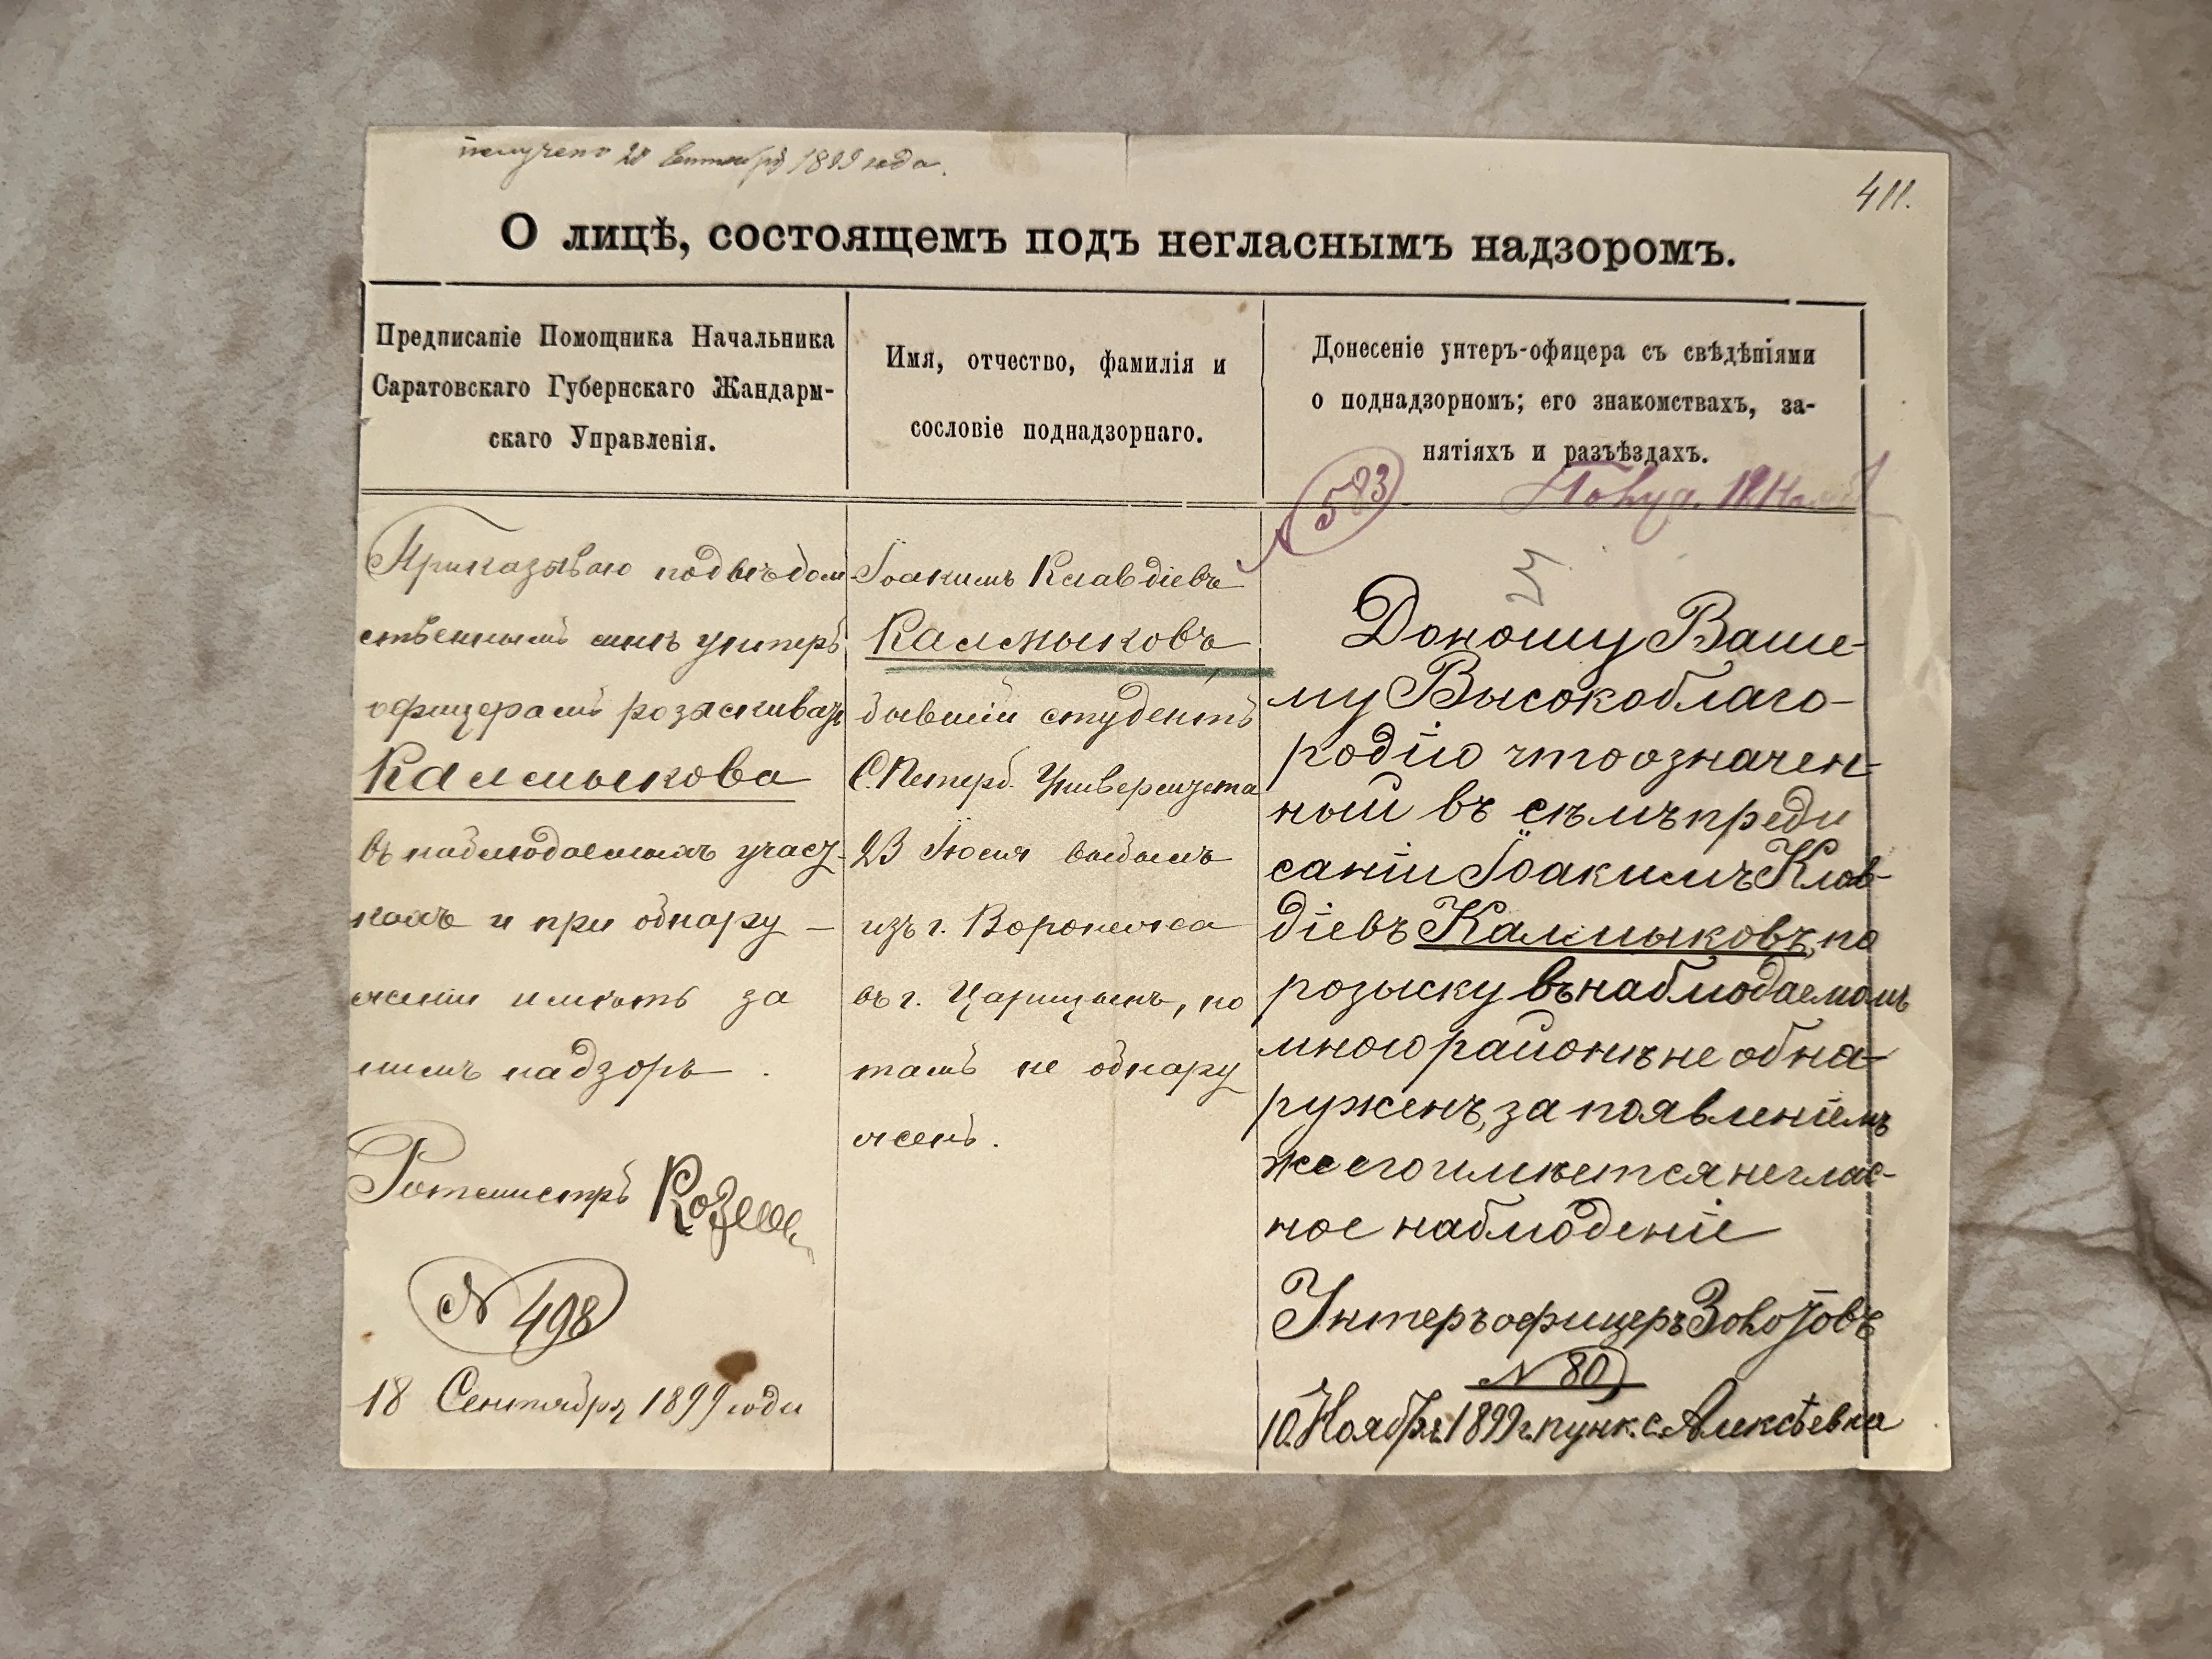 получено 20 Сентября 1899 года.
411.
О лицѣ, состоящемъ подъ негласнымъ надзоромъ.
Предписаніе Помощника Начальника
Саратовскаго Губернскаго Жандарм-
скаго Управленія.
Имя, отчество, фамилія и
сословіе поднадзорнаго.
Донесеніе унтеръ-офицера съ свѣдѣніями
о поднадзорномъ; его знакомствахъ, за-
нятіяхъ и разъѣздахъ.
583
Приказываю подвѣдом
ственнымъ мнѣ унтеръ
офицерамъ розыскивать
Калмыкова
въ наблюдаемыхъ участ-
кахъ и при обнару-
женіи имѣть за
нимъ надзоръ.
Ротмистръ
N 498
18 Сентября 1899 года
Іоакимъ Клавдіевъ
Калмыковъ
бывшій студентъ
С.Петерб. Университета
23 Іюля выбылъ
изъ г. Воронежа
въ г. Царицынъ, но
тамъ не обнару
женъ.
Доношу Ваше-
му Высокоблаго-
родію что означен-
ный въ семъ преди
саніи Іоакимъ Клав-
діевъ Калмыковъ, по
розыску въ наблюдаемомъ
мною районѣ не обна-
руженъ, за появленіемъ
же его имѣется неглас-
ное наблюденіе
Унтеръ офицеръ Золотовъ
N 80
10 Ноября 1899 г. пунк. с. Алексѣевка